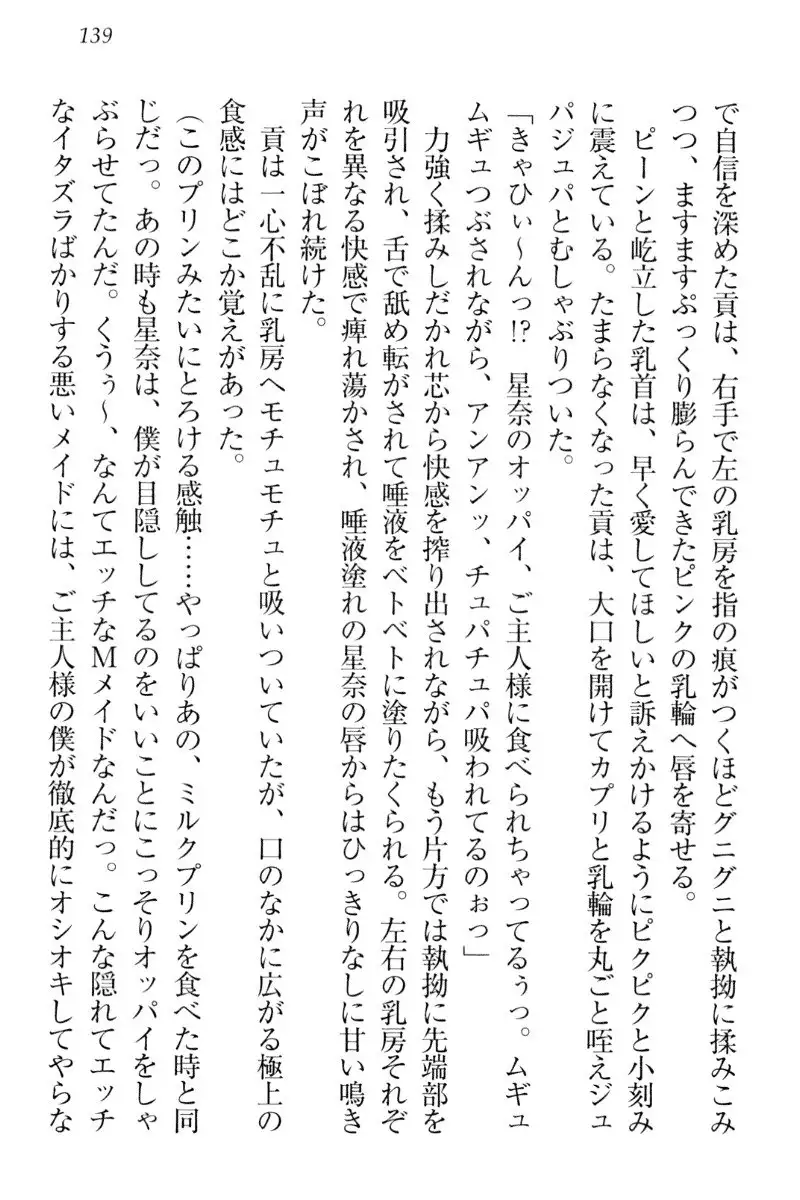 139
で自信を深めた貢は、右手で左の乳房を指の痕がつくほどグニグニと執拗に揉みこみ
つつ、ますますぷっくり膨らんできたピンクの乳輪へ唇を寄せる。
ピーンと屹立した乳首は、早く愛してほしいと訴えかけるようにピクピクと小刻み
に震えている。たまらなくなった貢は、大口を開けてカプリと乳輪を丸ごと咥えジュ
パジュパとむしゃぶりついた。
「きゃひぃ～んっ!?　星奈のオッパイ、ご主人様に食べられちゃってるぅっ。ムギュ
ムギュつぶされながら、アンアンッ、チュパチュパ吸われてるのぉっ」
力強く揉みしだかれ芯から快感を搾り出されながら、もう片方では執拗に先端部を
吸引され、舌で舐め転がされて唾液をベトベトに塗りたくられる。左右の乳房それぞ
れを異なる快感で痺れ蕩かされ、唾液塗れの星奈の唇からはひっきりなしに甘い鳴き
声がこぼれ続けた。
貢は一心不乱に乳房へモチュモチュと吸いついていたが、口のなかに広がる極上の
食感にはどこか覚えがあった。
（このプリンみたいにとろける感触……やっぱりあの、ミルクプリンを食べた時と同
じだっ。あの時も星奈は、僕が目隠ししてるのをいいことにこっそりオッパイをしゃ
ぶらせてたんだ。くうぅ～、なんてエッチなＭメイドなんだっ。こんな隠れてエッチ
なイタズラばかりする悪いメイドには、ご主人様の僕が徹底的にオシオキしてやらな